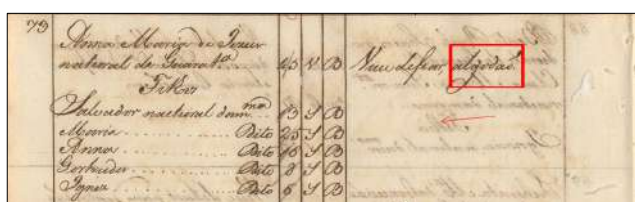 79
Anna Maria de Jesus
natural de Guarat.ª 45 V B Vive de fiar, algodaõ.
Filhos
Salvador natural da m.ma 13 S B
Maria Dito 25 S B
Anna Dito 16 S B
Gertrudes Dito 8 S B
Ignez Dito 6 S B